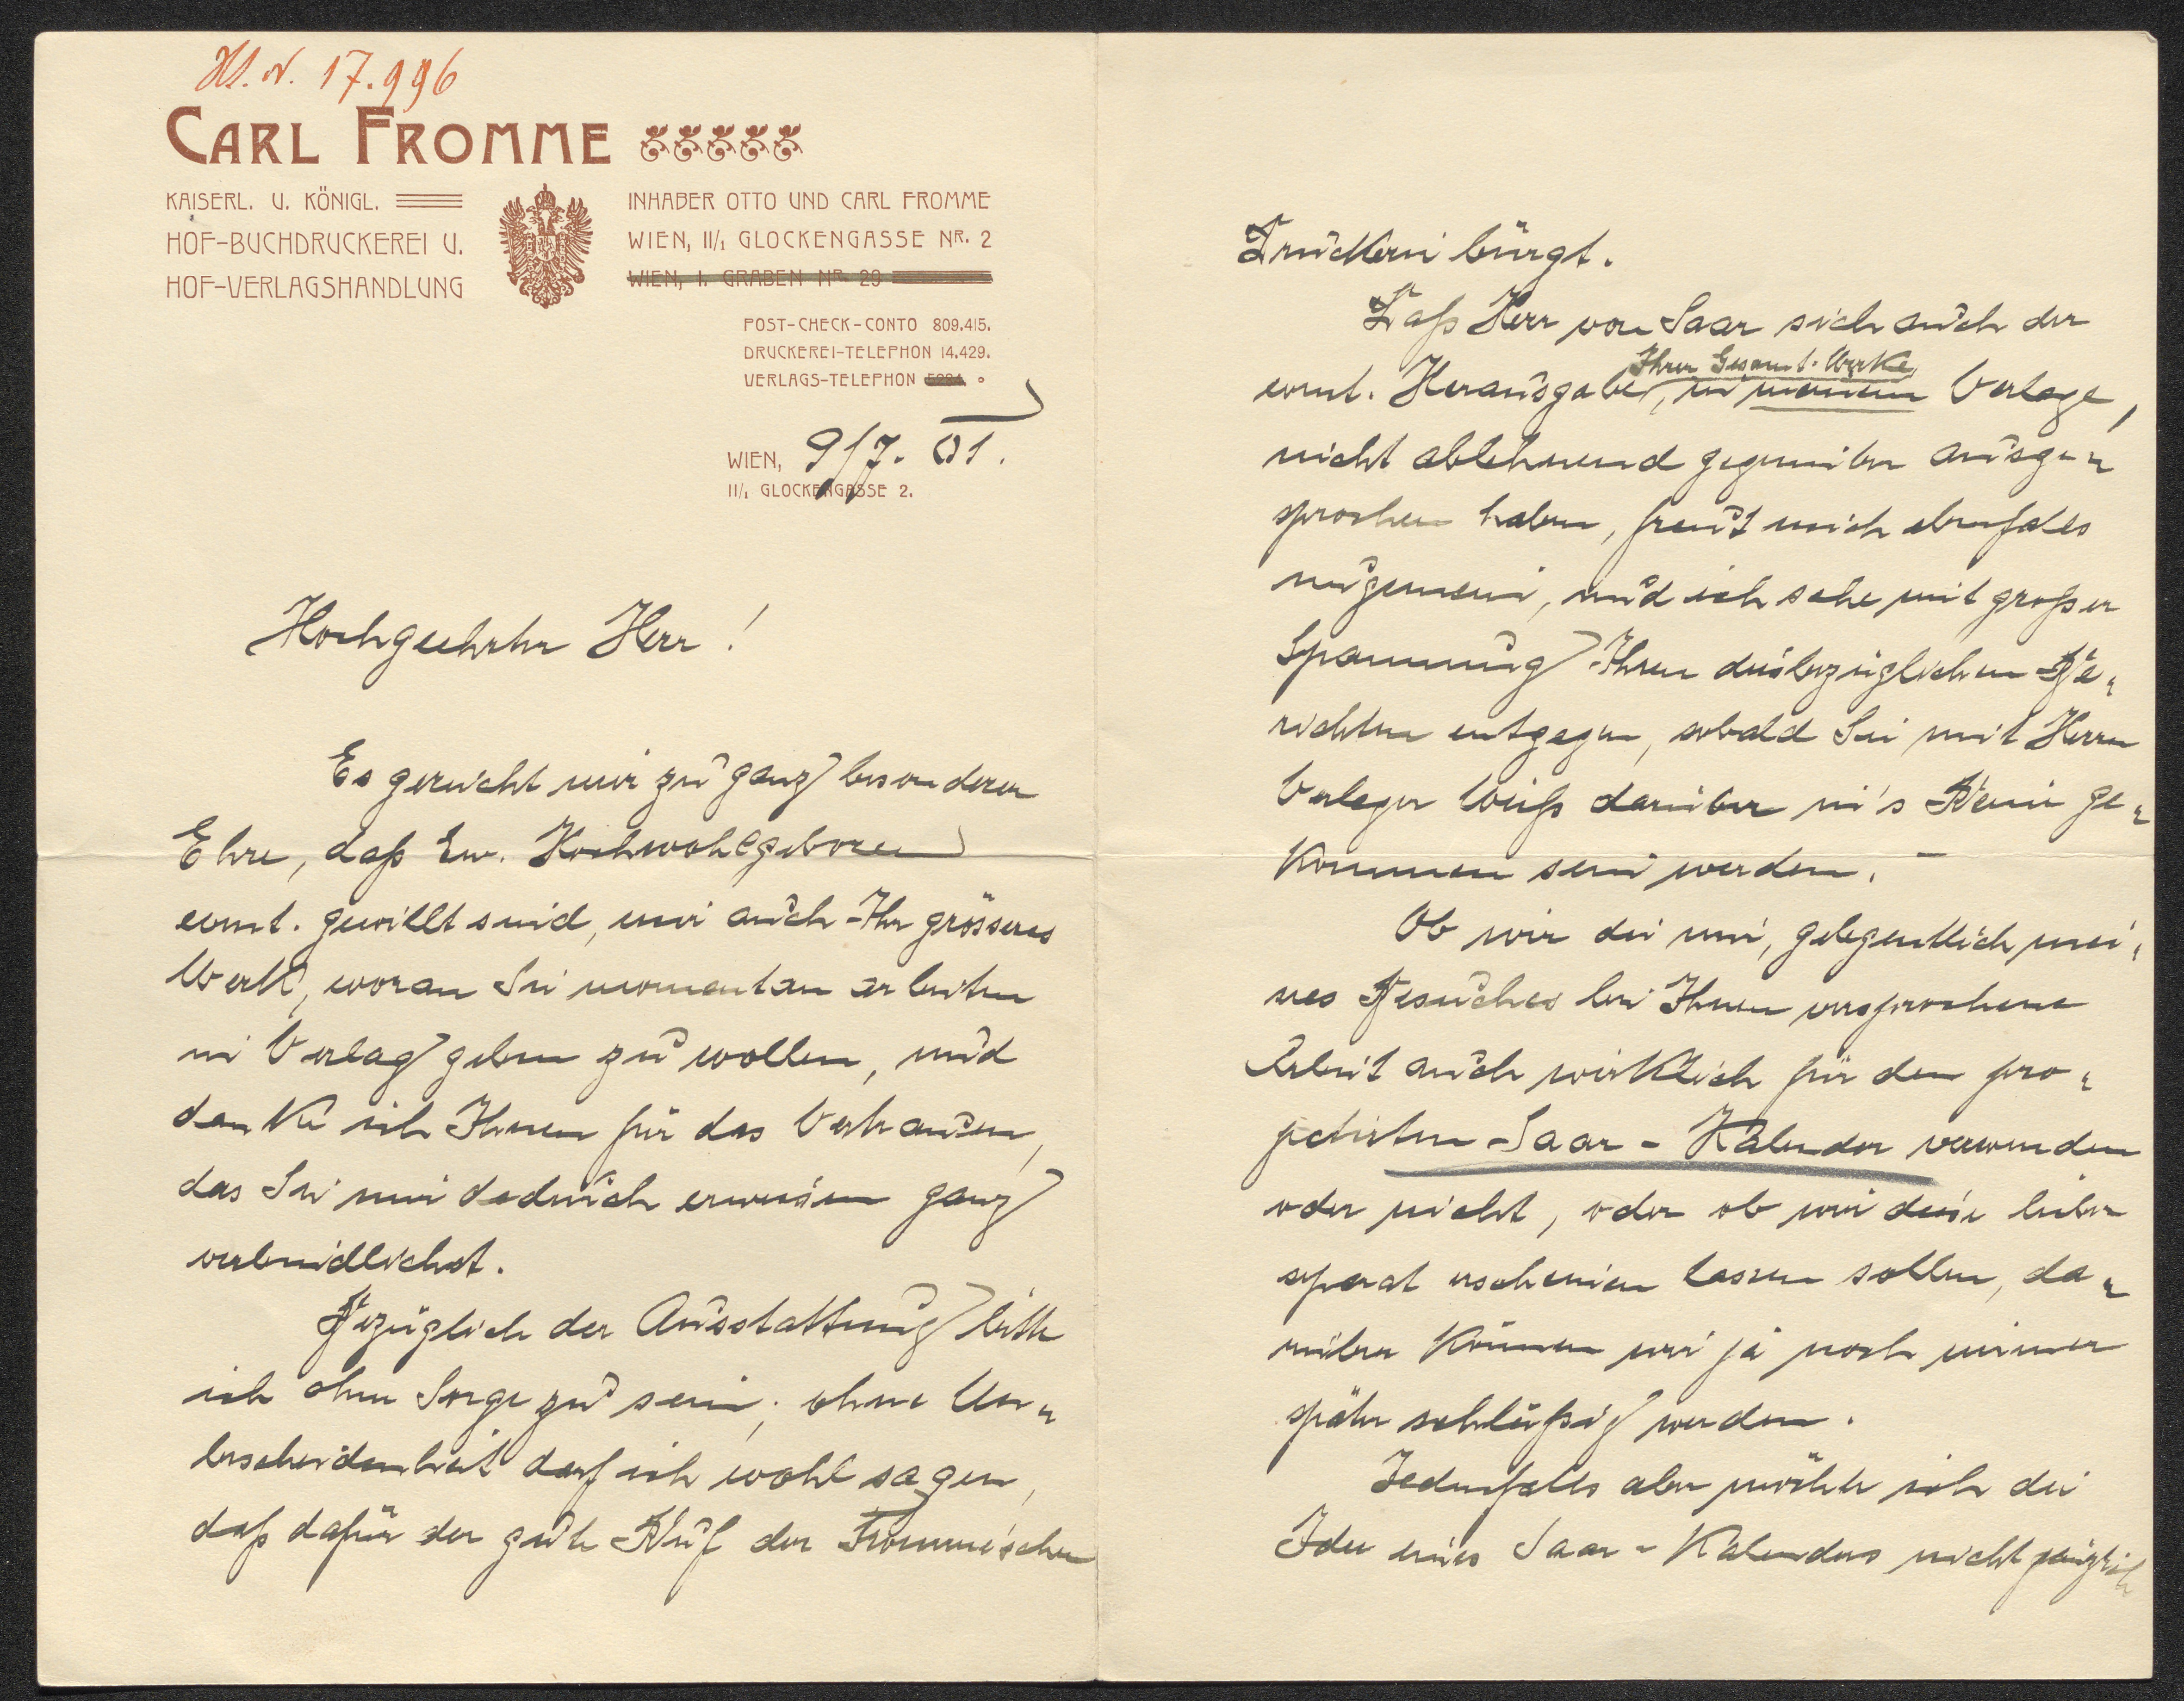 Hs. N. 17.996
CARL FROMME
KAISERL. U. KÖNIGL.
HOF-BUCHDRUCKEREI U.
HOF-VERLAGSHANDLUNG
INHABER OTTO UND CARL FROMME
WIEN, II/1 GLOCKENGASSE NR. 2
WIEN, I. GRABEN NR. 29
POST-CHECK-CONTO 809.415.
DRUCKEREI-TELEPHON 14.429.
VERLAGS-TELEPHON
WIEN, 9/7. 01.
II/1 GLOCKENGASSE 2.
Hochgeehrter Herr!
Es gereicht mir zu ganz besonderer
Ehre, daß Euer. Hochwohlgeboren
event. gewillt sind, mir auch Ihr grösseres
Werk, woran Sie momentan arbeiten
in Verlag geben zu wollen, und
danke ich Ihnen für das Vertrauen,
das Sie mir dadurch erweisen ganz
verbindlichst.
Bezüglich der Ausstattung bitte
ich ohne Sorge zu sein; ohne Un-
bescheidenheit darf ich wohl sagen,
daß dafür der gute Ruf der Fromme'schen
Druckerei bürgt.
Daß Herr von Saar sich auch der
event. Herausgabe Ihrer Gesamt-Werke, in meinem Verlage,
nicht ablehnend gegenüber ausge-
sprochen haben, freut mich ebenfalls
ungemein, und ich sehe mit großer
Spannung Ihren diesbezüglichen Be-
richten entgegen, sobald Sie mit Herrn
Verleger Weiß darüber in's Reine ge-
kommen sein werden. –
Ob wir die mir, gelegentlich mei-
nes Besuches bei Ihnen versprochene
Arbeit auch wirklich für den pro-
jectirten Saar-Kalender verwenden
oder nicht, oder ob wir diese lieber
separat erscheinen lassen sollen, da-
rüber können wir ja noch immer
später schlüßig werden.
Jedenfalls aber möchte ich die
Idee eines Saar-Kalenders nicht gänzlich